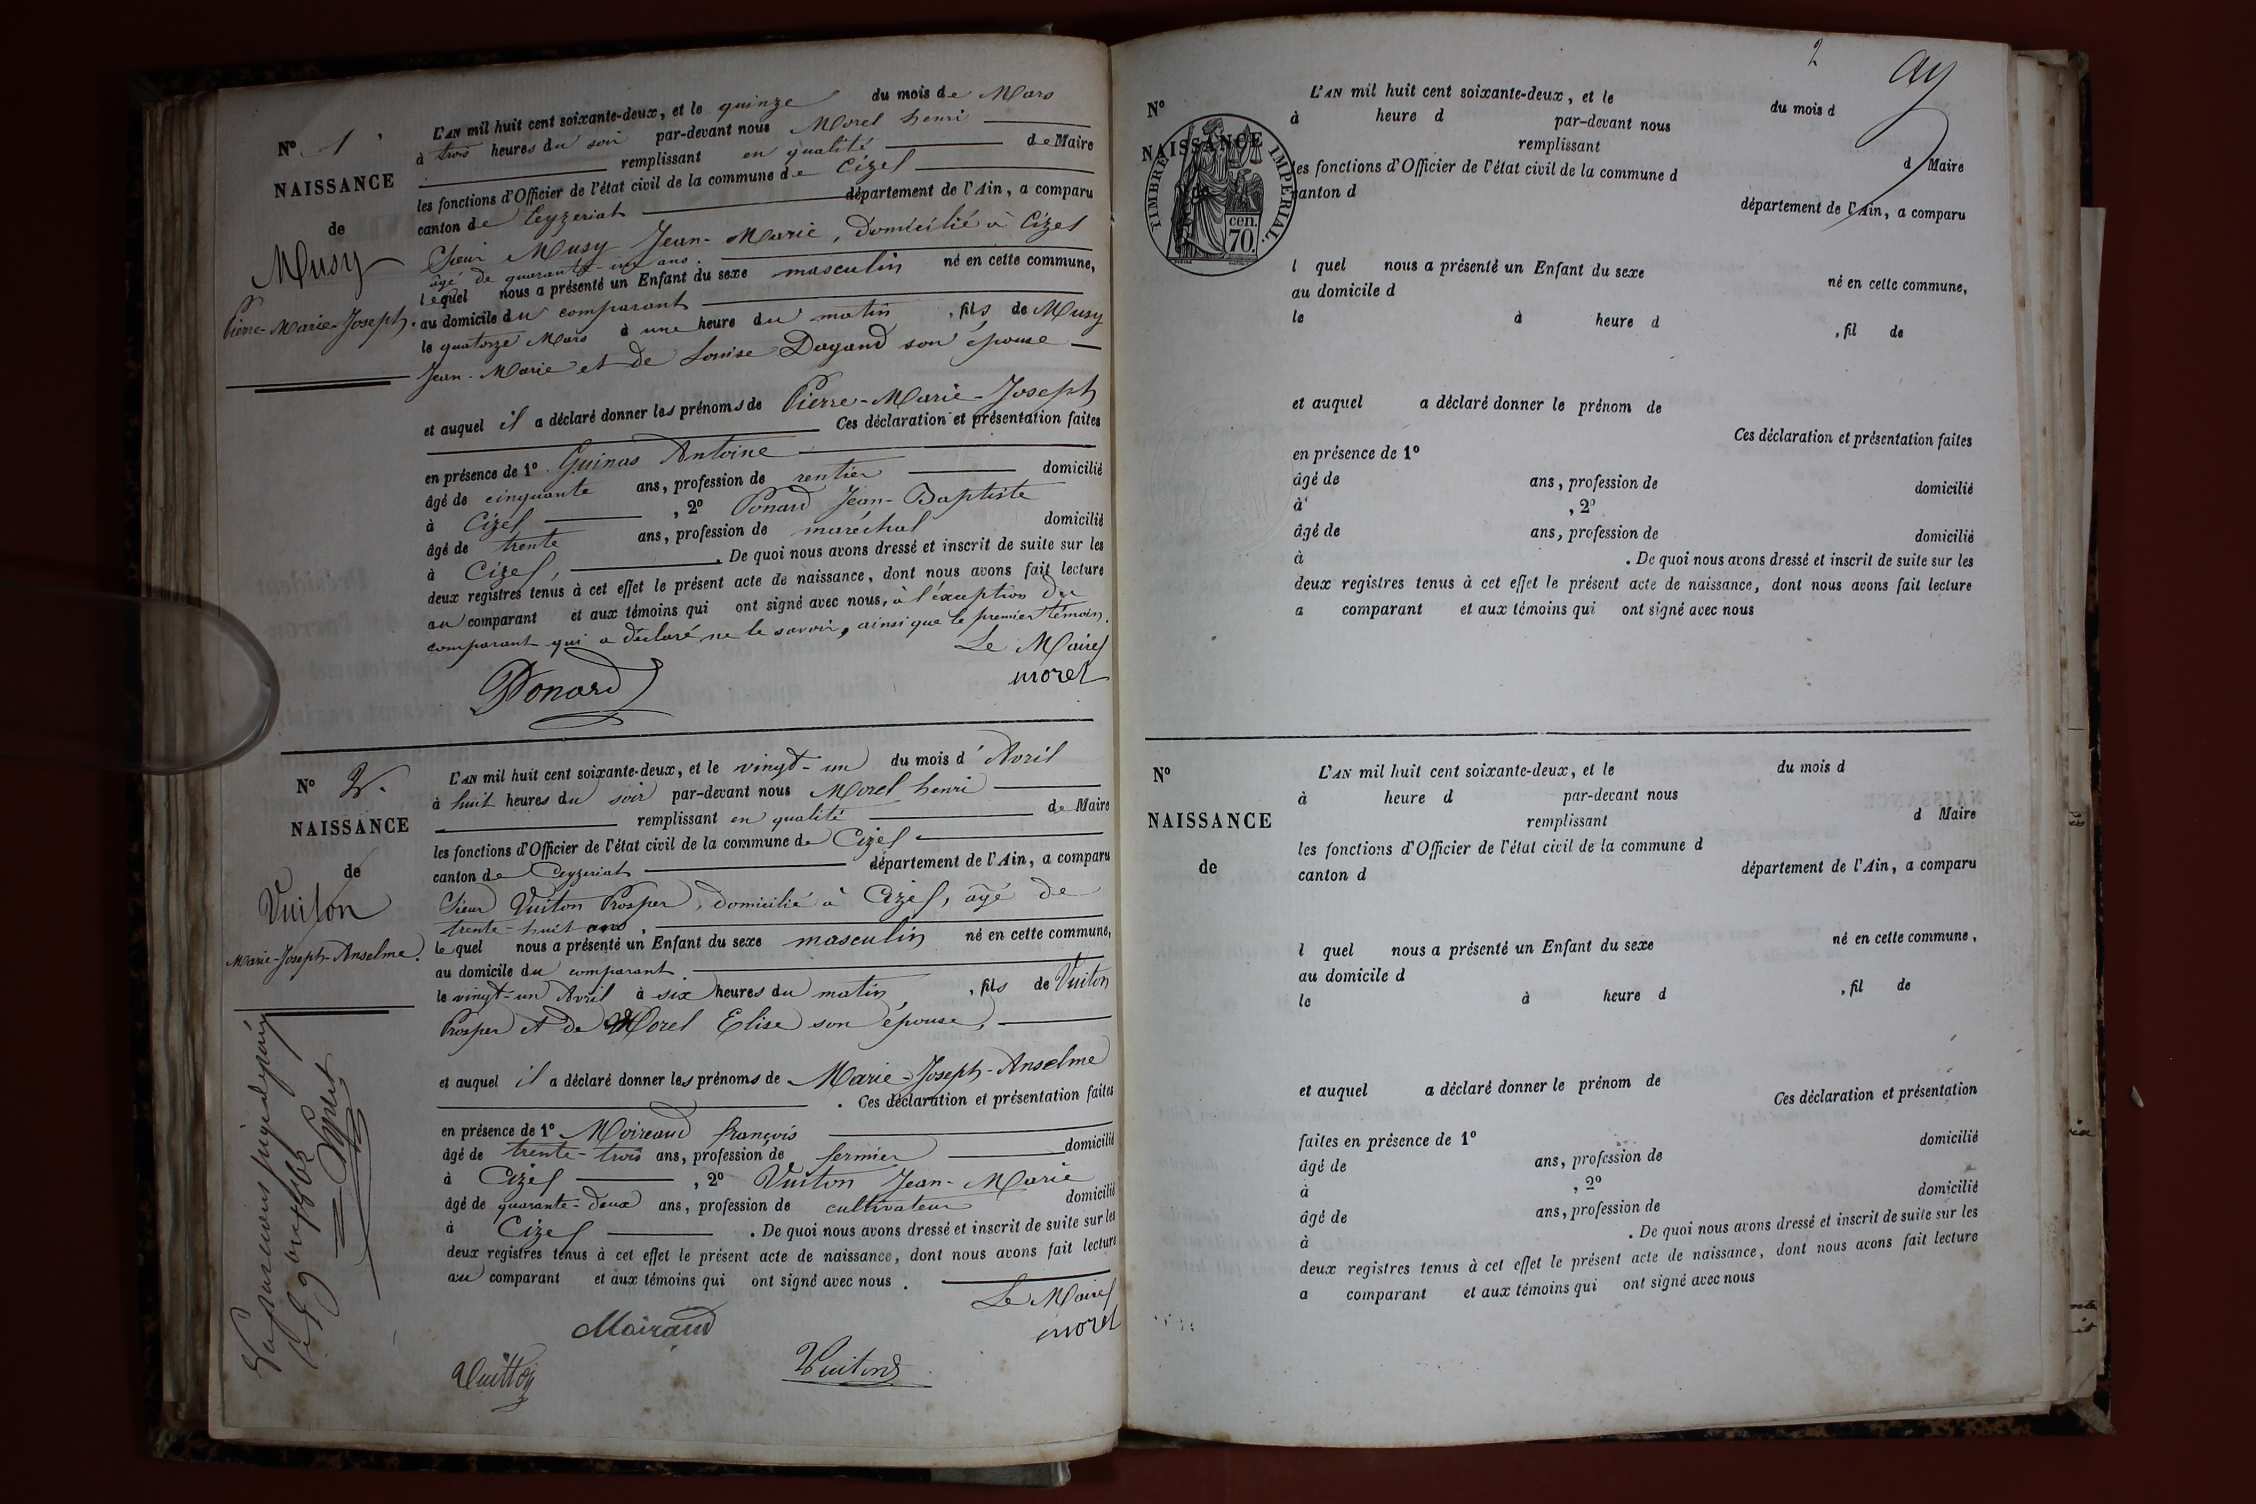 N° 1
NAISSANCE
de
Musy
Pierre-Marie-Joseph.
L'AN mil huit cent soixante-deux, et le quinze du mois de Mars
à trois heures du soir par-devant nous Morel henri
remplissant en qualité de Maire
les fonctions d'Officier de l'état civil de la commune de Cizes
canton de Ceyzeriat département de l'Ain, a comparu
Sieur Musy Jean-Marie, domicilié à Cizes
âgé de quarante-un ans.
lequel nous a présenté un Enfant du sexe masculin né en cette commune,
au domicile du comparant
le quatorze Mars à une heure du matin, fils de Musy
Jean-Marie et de Louise Dagand son épouse
et auquel il a déclaré donner les prénoms de Pierre-Marie-Joseph
Ces déclaration et présentation faites
en présence de 1° Guinas Antoine
âgé de cinquante ans, profession de rentier domicilié
à Cizes, 2° Ponard Jean-Baptiste
âgé de trente ans, profession de maréchal domicilié
à Cizes, . De quoi nous avons dressé et inscrit de suite sur les
deux registres tenus à cet effet le présent acte de naissance, dont nous avons fait lecture
au comparant et aux témoins qui ont signé avec nous, à l'éxception du
comparant qui a déclaré ne le savoir, ainsi que le premier témoin.
Le Maire
Ponard morel
N° 2.
NAISSANCE
de
Vuiton
Marie-Joseph-Anselme.
L'AN mil huit cent soixante-deux, et le vingt-un du mois d'Avril
à huit heures du soir par-devant nous Morel henri
remplissant en qualité de Maire
les fonctions d'Officier de l'état civil de la commune de Cizes
canton de Ceyzeriat département de l'Ain, a comparu
Sieur Vuiton Prosper, domicilié à Cizes, âgé de
trente-huit ans.
lequel nous a présenté un Enfant du sexe masculin né en cette commune,
au domicile du comparant.
le vingt-un Avril à six heures du matin, fils de Vuiton
Prosper et de Morel Elise son épouse,
et auquel il a déclaré donner les prénoms de Marie-Joseph-Anselme
. Ces déclaration et présentation faites
en présence de 1° Moiraud françois
âgé de trente-trois ans, profession de fermier domicilié
à Cizes, 2° Vuiton Jean-Marie
âgé de quarante-deux ans, profession de cultivateur domicilié
à Cizes . De quoi nous avons dressé et inscrit de suite sur les
deux registres tenus à cet effet le présent acte de naissance, dont nous avons fait lecture
au comparant et aux témoins qui ont signé avec nous.
Le Maire
Moiraud morel
Vuitton Vuiton
2
N°
NAISSANCE
de
TIMBRE IMPERIAL.
70 cen.
L'AN mil huit cent soixante-deux, et le du mois d
à heure d par-devant nous
remplissant d Maire
les fonctions d'Officier de l'état civil de la commune d
canton d département de l'Ain, a comparu
l quel nous a présenté un Enfant du sexe né en cette commune,
au domicile d
le à heure d , fil de
et auquel a déclaré donner le prénom de
Ces déclaration et présentation faites
en présence de 1°
âgé de ans, profession de domicilié
à , 2°
âgé de ans, profession de domicilié
à . De quoi nous avons dressé et inscrit de suite sur les
deux registres tenus à cet effet le présent acte de naissance, dont nous avons fait lecture
a comparant et aux témoins qui ont signé avec nous
N°
NAISSANCE
de
L'AN mil huit cent soixante-deux, et le du mois d
à heure d par-devant nous
remplissant d Maire
les fonctions d'Officier de l'état civil de la commune d
canton d département de l'Ain, a comparu
l quel nous a présenté un Enfant du sexe né en cette commune,
au domicile d
le à heure d , fil de
et auquel a déclaré donner le prénom de
Ces déclaration et présentation
faites en présence de 1° domicilié
âgé de ans, profession de
à , 2° domicilié
âgé de ans, profession de
à . De quoi nous avons dressé et inscrit de suite sur les
deux registres tenus à cet effet le présent acte de naissance, dont nous avons fait lecture
a comparant et aux témoins qui ont signé avec nous